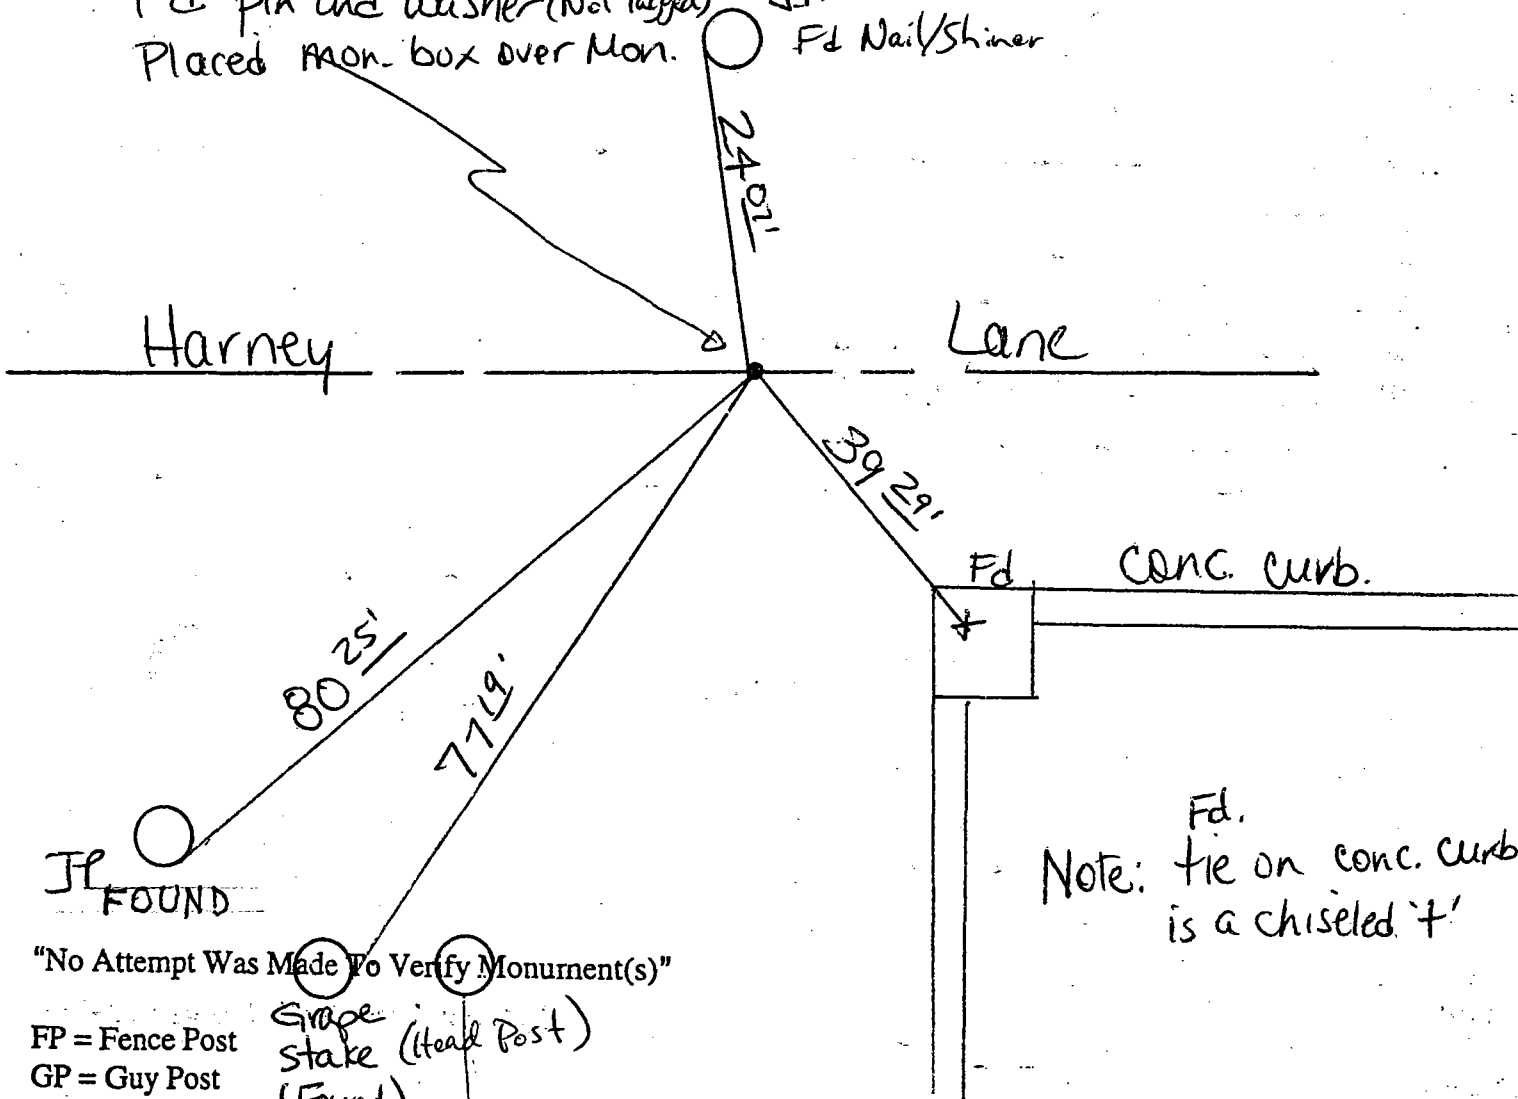 Fd pin and washer (Not tagged)
Placed mon. box over Mon.
Fd Nail/Shiner
24 07'
Harney Lane
39 29'
Fd conc. curb.
80 25'
77 19'
JP
FOUND
Fd.
Note: tie on conc. curb
is a chiseled '+'
"No Attempt Was Made To Verify Monument(s)"
Grape
stake (Head Post)
(Found)
FP = Fence Post
GP = Guy Post